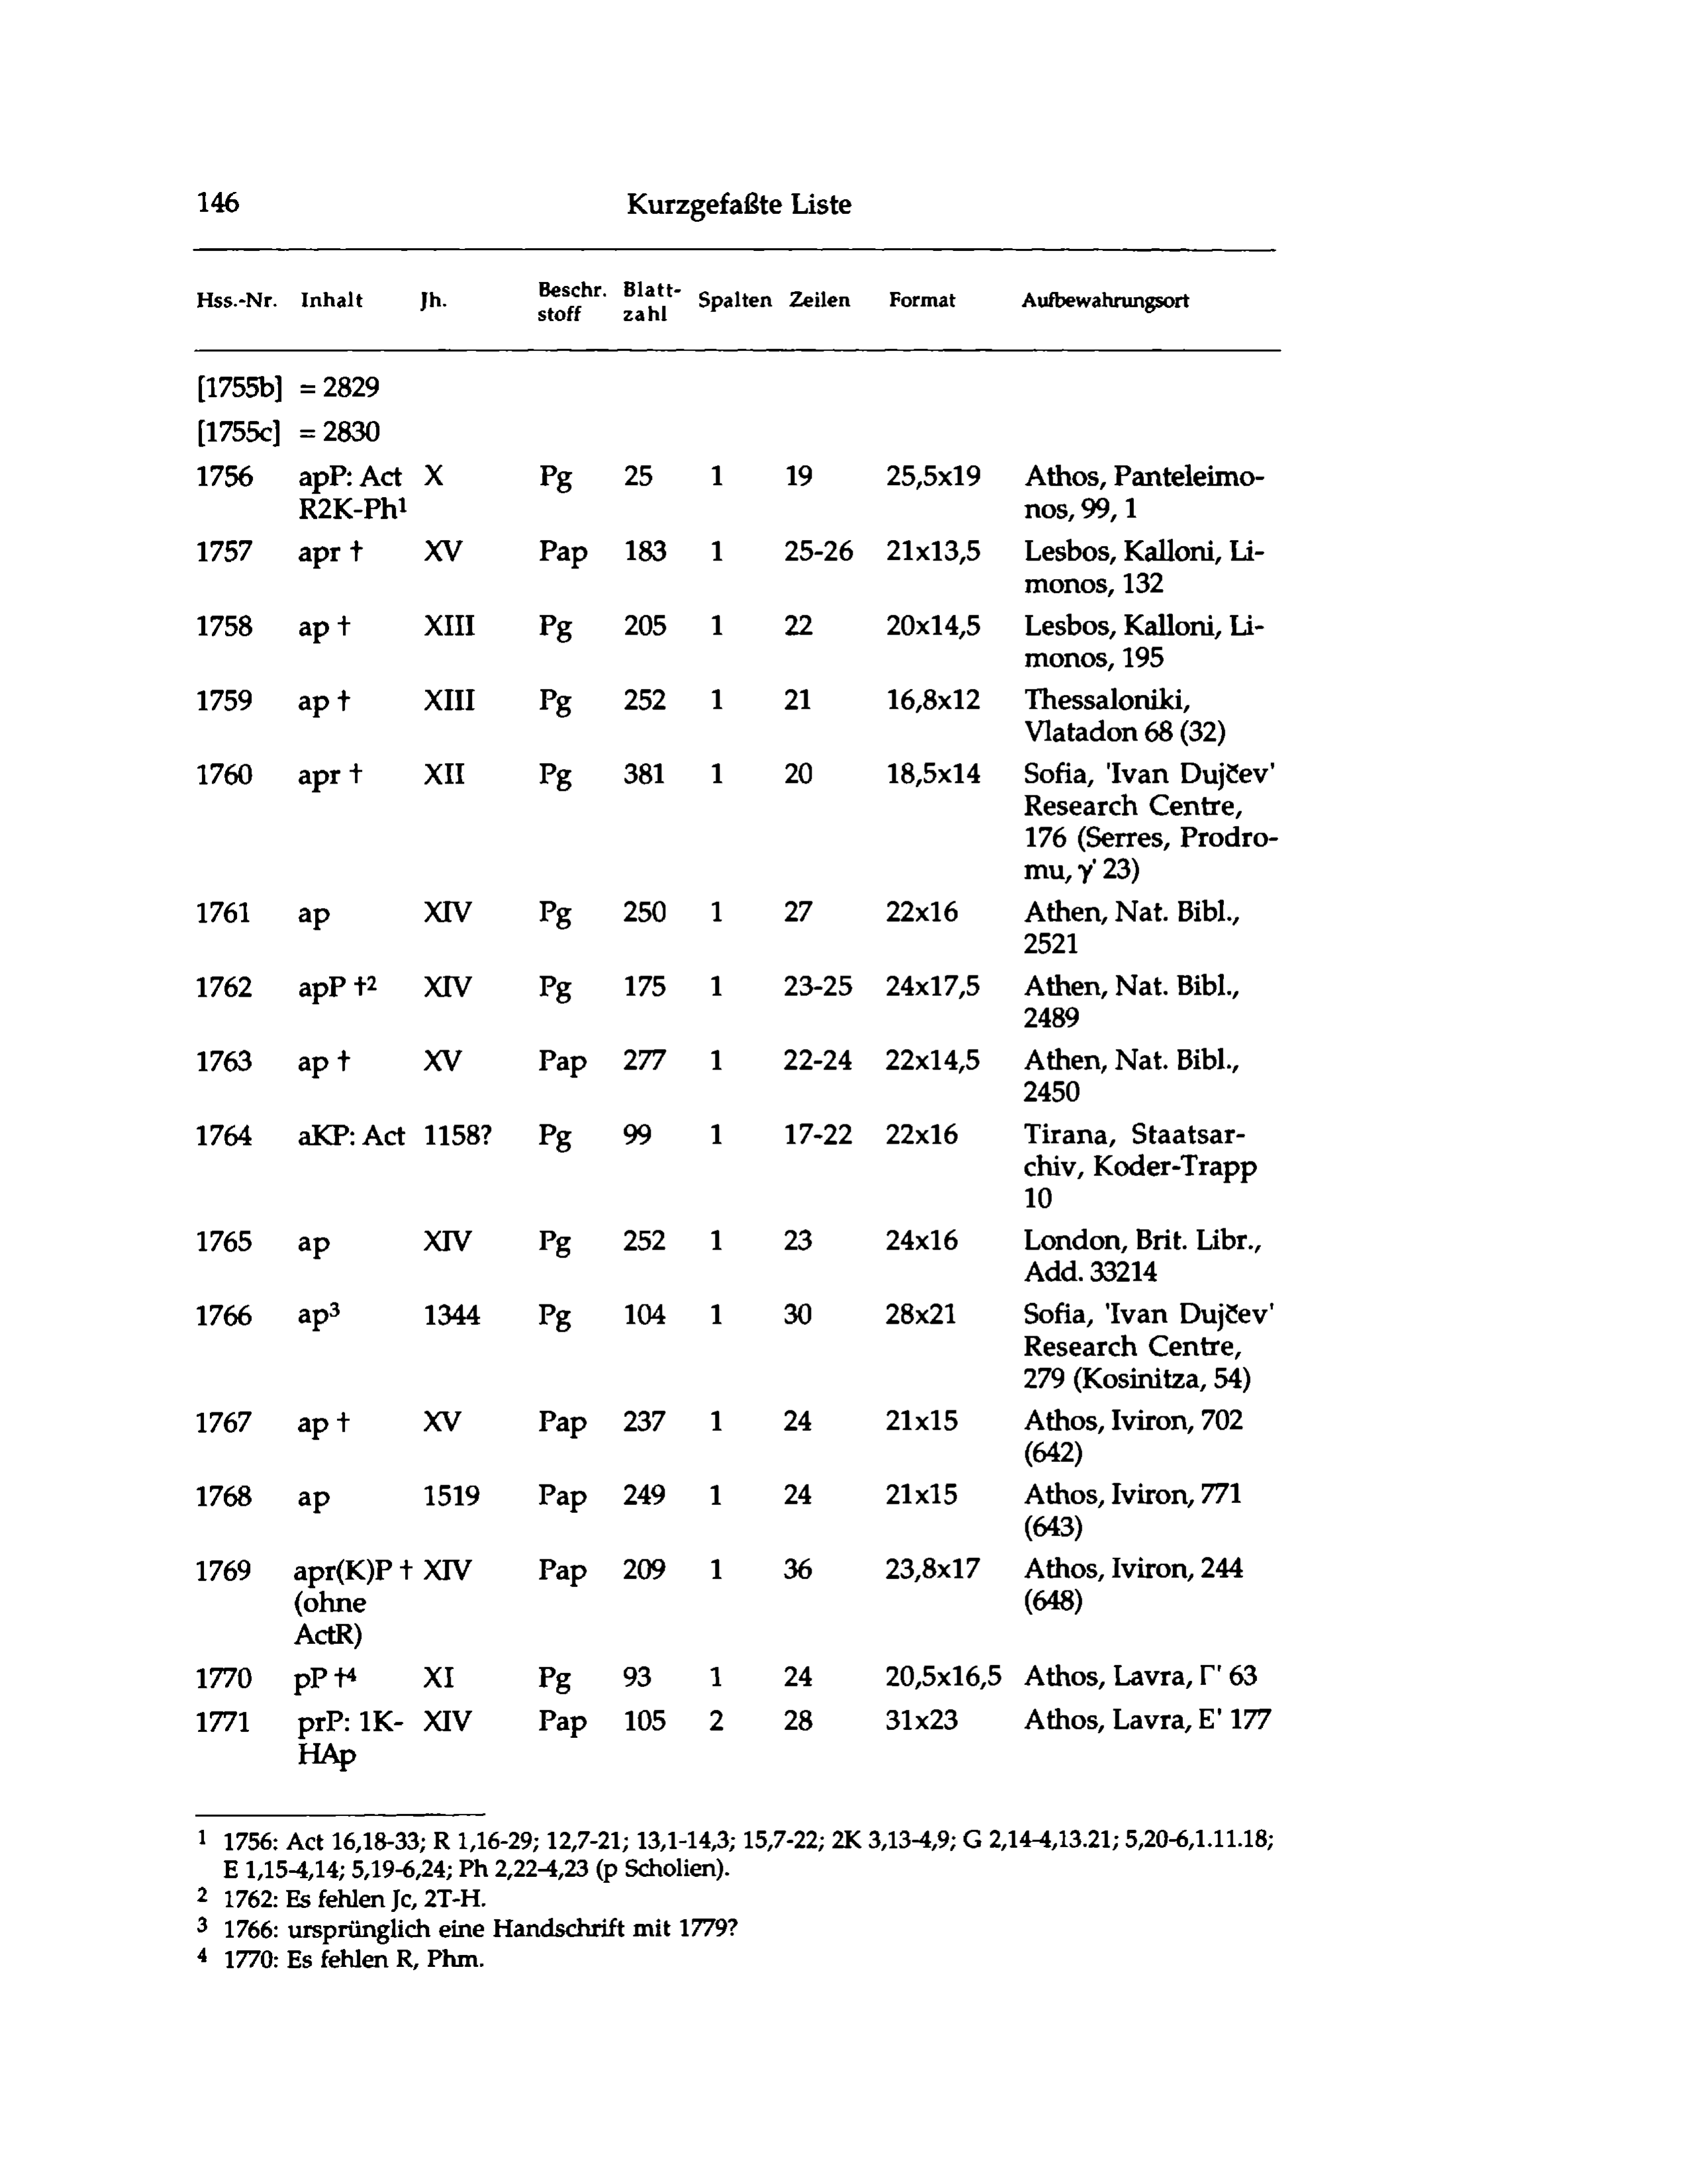 146 Kurzgefaßte Liste
Hss.-Nr. Inhalt Jh. Beschr. stoff Blatt- zahl Spalten Zeilen Format Aufbewahrungsort
[1755b] = 2829
[1755c] = 2830
1756 apP: Act X Pg 25 1 19 25,5x19 Athos, Panteleimo-
R2K-Ph¹ nos, 99, 1
1757 apr † XV Pap 183 1 25-26 21x13,5 Lesbos, Kalloni, Li-
monos, 132
1758 ap † XIII Pg 205 1 22 20x14,5 Lesbos, Kalloni, Li-
monos, 195
1759 ap † XIII Pg 252 1 21 16,8x12 Thessaloniki,
Vlatadon 68 (32)
1760 apr † XII Pg 381 1 20 18,5x14 Sofia, 'Ivan Dujčev'
Research Centre,
176 (Serres, Prodro-
mu, γ' 23)
1761 ap XIV Pg 250 1 27 22x16 Athen, Nat. Bibl.,
2521
1762 apP †² XIV Pg 175 1 23-25 24x17,5 Athen, Nat. Bibl.,
2489
1763 ap † XV Pap 277 1 22-24 22x14,5 Athen, Nat. Bibl.,
2450
1764 aKP: Act 1158? Pg 99 1 17-22 22x16 Tirana, Staatsar-
chiv, Koder-Trapp
10
1765 ap XIV Pg 252 1 23 24x16 London, Brit. Libr.,
Add. 33214
1766 ap³ 1344 Pg 104 1 30 28x21 Sofia, 'Ivan Dujčev'
Research Centre,
279 (Kosinitza, 54)
1767 ap † XV Pap 237 1 24 21x15 Athos, Iviron, 702
(642)
1768 ap 1519 Pap 249 1 24 21x15 Athos, Iviron, 771
(643)
1769 apr(K)P † XIV Pap 209 1 36 23,8x17 Athos, Iviron, 244
(ohne (648)
ActR)
1770 pP †⁴ XI Pg 93 1 24 20,5x16,5 Athos, Lavra, Γ' 63
1771 prP: 1K- XIV Pap 105 2 28 31x23 Athos, Lavra, E' 177
HAp
¹ 1756: Act 16,18-33; R 1,16-29; 12,7-21; 13,1-14,3; 15,7-22; 2K 3,13-4,9; G 2,14-4,13.21; 5,20-6,1.11.18;
E 1,15-4,14; 5,19-6,24; Ph 2,22-4,23 (p Scholien).
² 1762: Es fehlen Jc, 2T-H.
³ 1766: ursprünglich eine Handschrift mit 1779?
⁴ 1770: Es fehlen R, Phm.